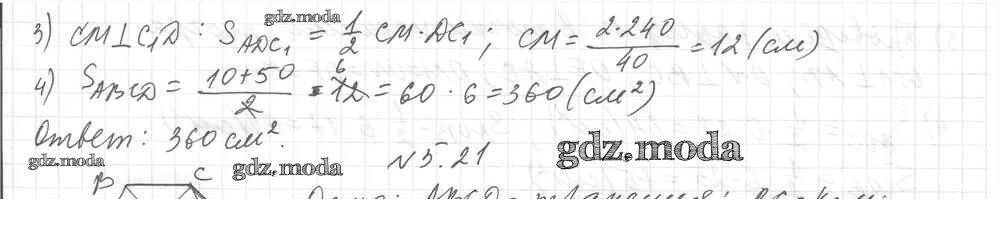 gdz.moda
3) CM⊥C₁D : S_ADC₁ = 1/2 CM·DC₁; CM = 2·240/40 = 12 (см)
4) S_ABCD = (10+50)/2 · 12 6 = 60·6 = 360 (см²)
Ответ: 360 см².
gdz.moda
gdz.moda
N 5.21
gdz.moda
B C